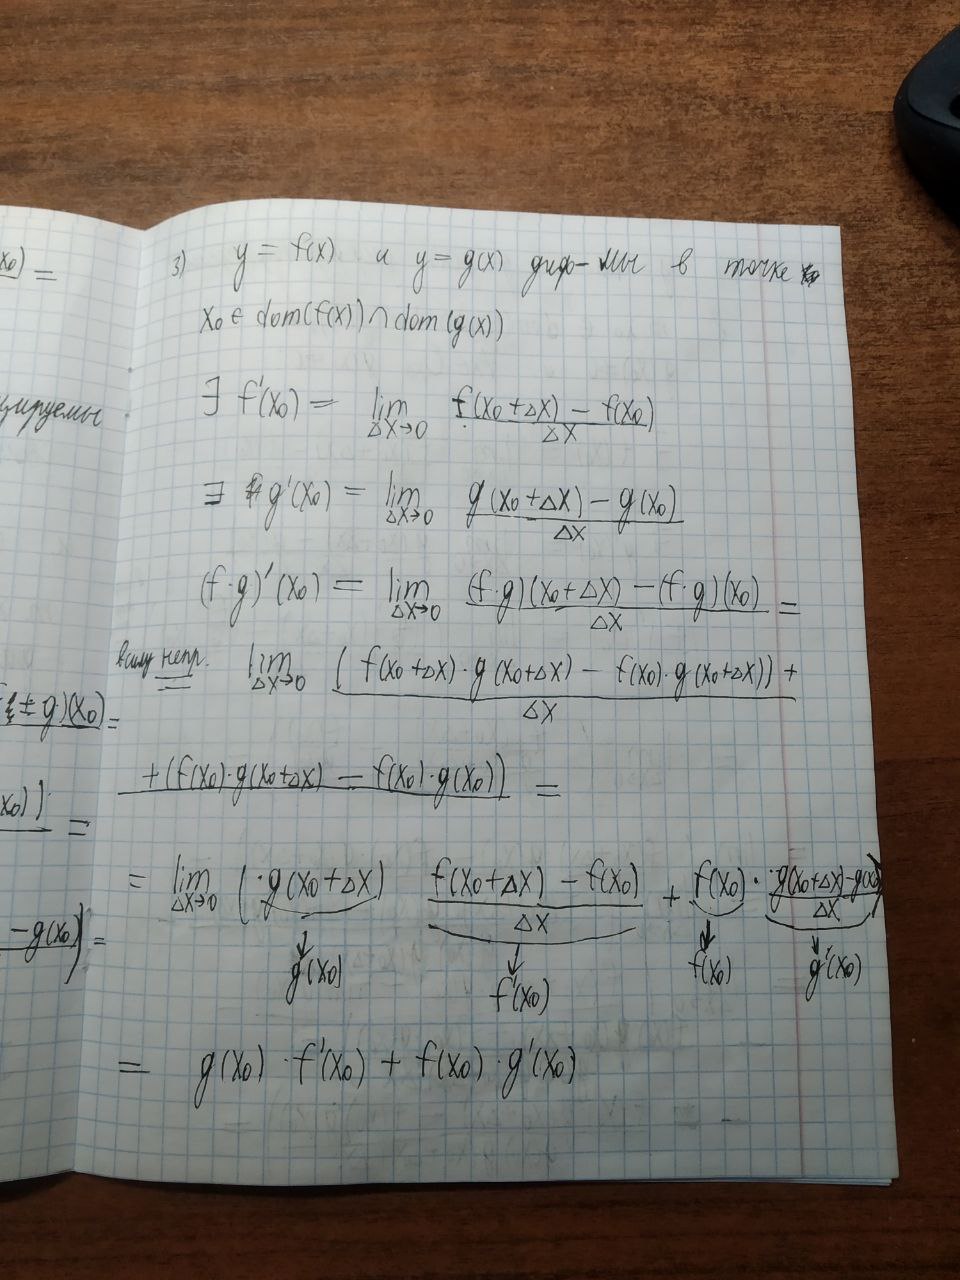 x₀) =
3) y = f(x) и y = g(x) диф-мы в точке
x₀ ∈ dom(f(x)) ∩ dom(g(x))
цируемы
∃ f'(x₀) = lim Δx→0 f(x₀+Δx) − f(x₀) / Δx
∃ g'(x₀) = lim Δx→0 g(x₀+Δx) − g(x₀) / Δx
(f·g)'(x₀) = lim Δx→0 (f·g)(x₀+Δx) − (f·g)(x₀) / Δx =
± g)(x₀) =
в силу непр. = lim Δx→0 (f(x₀+Δx)·g(x₀+Δx) − f(x₀)·g(x₀+Δx)) + / Δx
x₀)) =
+(f(x₀)·g(x₀+Δx) − f(x₀)·g(x₀)) =
− g(x₀) =
= lim Δx→0 (·g(x₀+Δx) f(x₀+Δx) − f(x₀) / Δx + f(x₀) · g(x₀+Δx)−g(x₀) / Δx)
↓ g(x₀) ↓ f'(x₀) ↓ f(x₀) ↓ g'(x₀)
= g(x₀)·f'(x₀) + f(x₀)·g'(x₀)